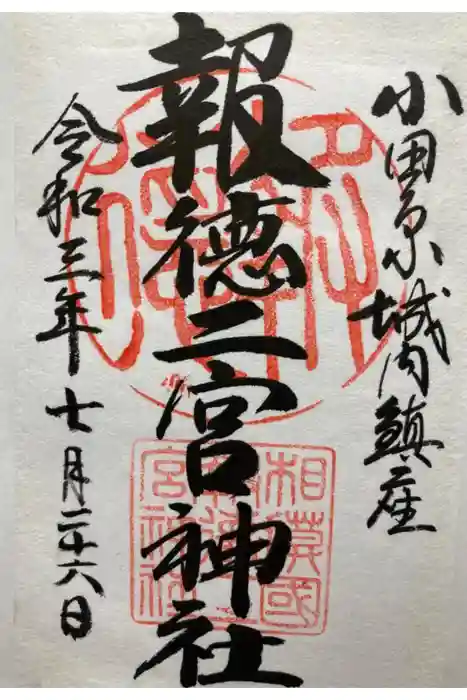 小田原城内鎮座
報徳二宮神社
令和三年七月二十六日
相模國
報徳二
宮神社